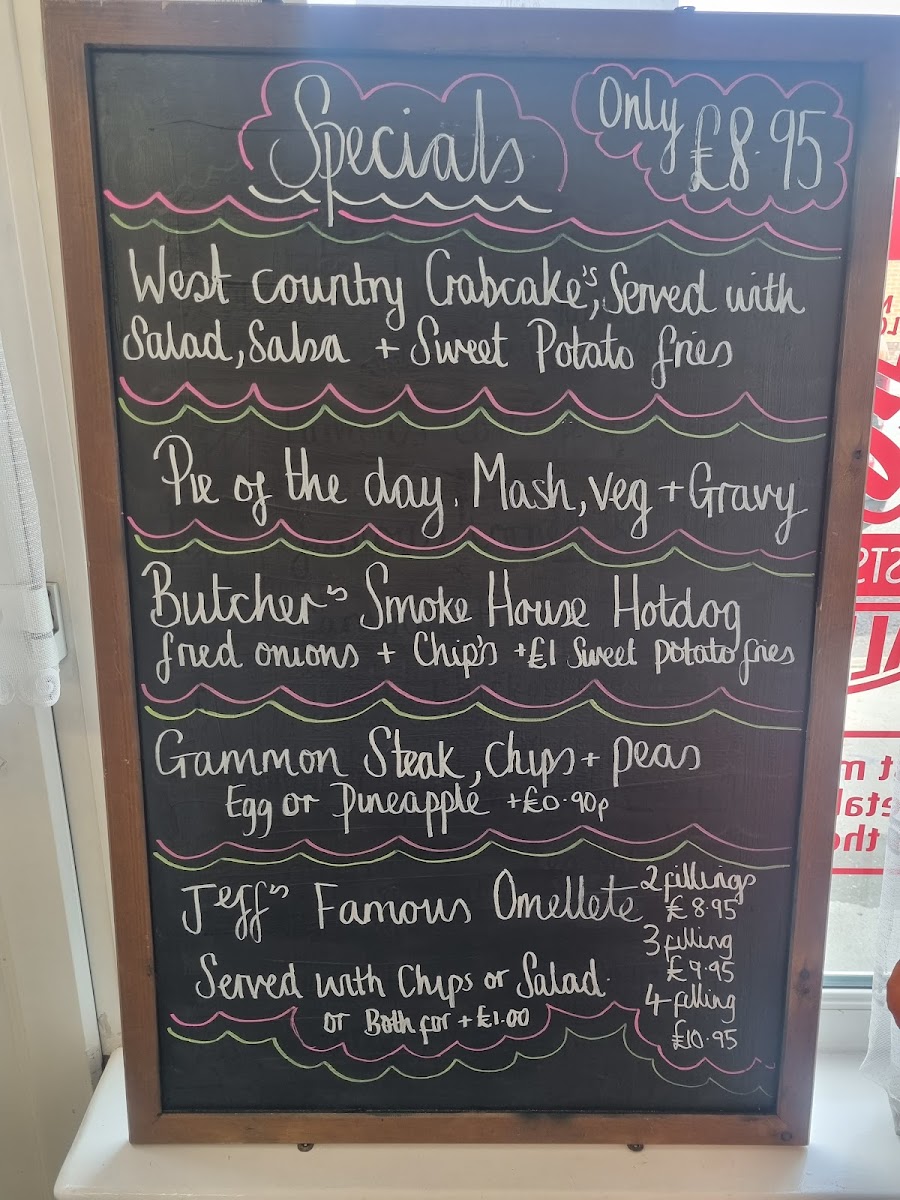 Specials
Only £8.95
West country Crabcake's, Served with
Salad, Salsa + Sweet Potato fries
Pie of the day. Mash, veg + Gravy
Butcher's Smoke House Hotdog
fried onions + Chip's +£1 Sweet potato fries
Gammon Steak, chips + peas
Egg or Pineapple +£0.90p
Jeff's Famous Omellete
2 fillings
£8.95
3 filling
£9.95
Served with Chips or Salad.
4 filling
or Both for +£1.00
£10.95